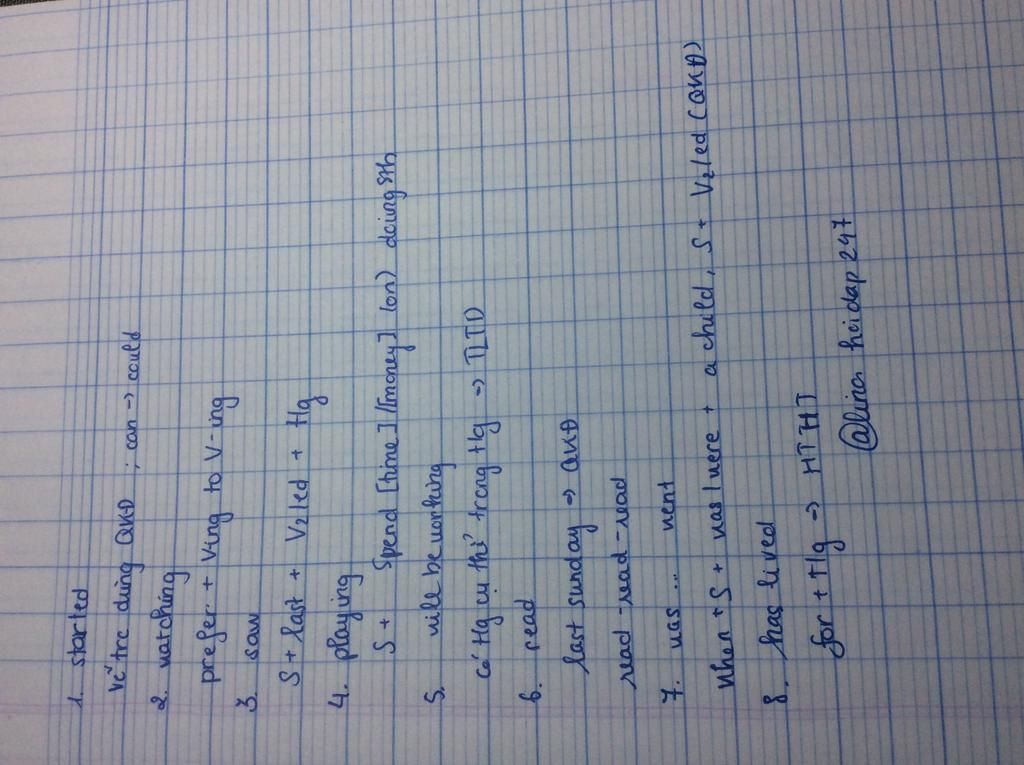 1. started
Vế trc dùng QKĐ ; can → could
2. watching
prefer + Ving to V-ing
3. saw
S + last + V2/ed + tg
4. playing
S + Spend [time]/[money] (on) doing sth
5. will be working
có tg cụ thể trong tg → TLTD
6. read
last sunday → QKĐ
read - read - read
7. was ... went
When + S + was/were + a child, S + V2/ed (QKĐ)
8. has lived
for + tg → HTHT
@lina hoidap247